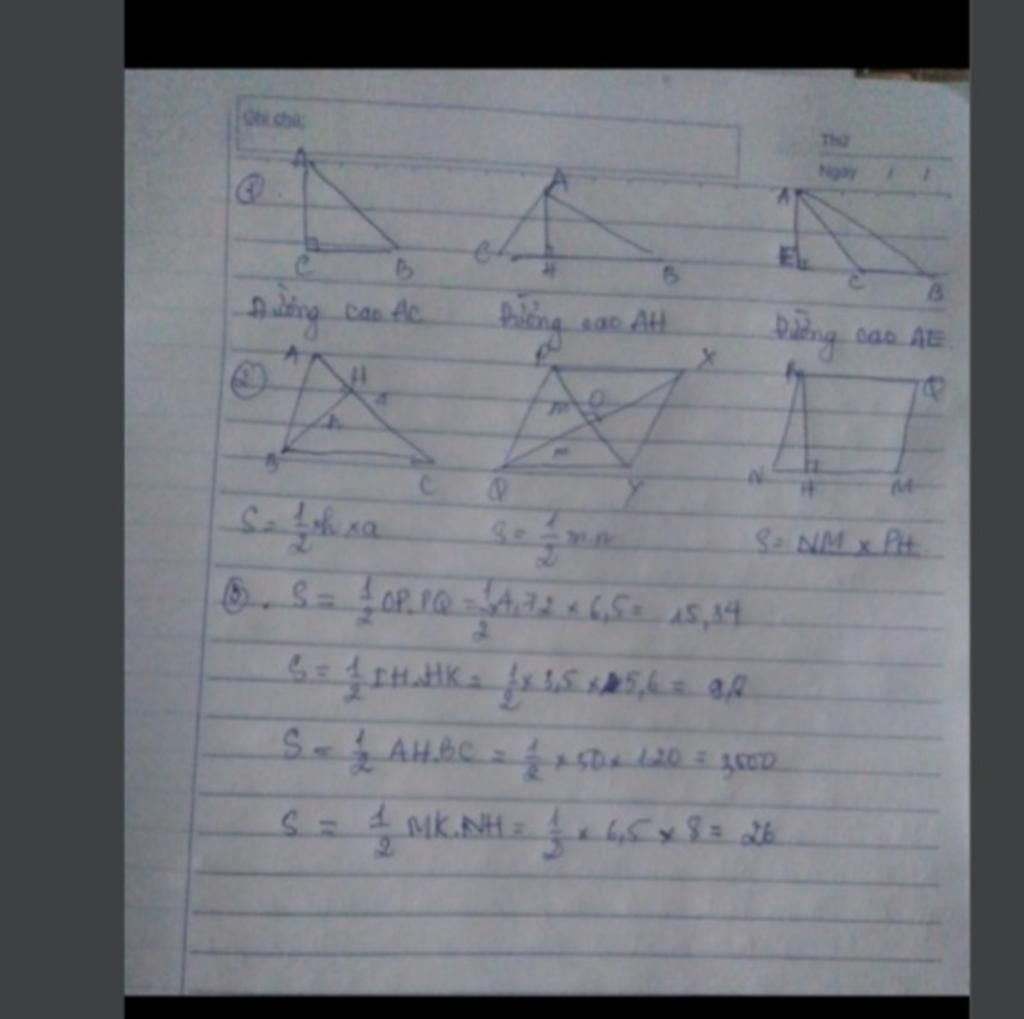 Ghi chú:
Thứ
Ngày / /
①.
A
C B
A
C H B
A
E C B
Đường cao AC Đường cao AH Đường cao AE
②
A H
h a
B C
P X
m O
Q Y
Q
N H M
S = 1/2 × h × a S = 1/2 m.n S = NM × PH
③. S = 1/2 OP.PQ = 1/2 4,72 × 6,5 = 15,34
S = 1/2 IH.HK = 1/2 × 3,5 × 5,6 = 9,8
S = 1/2 AH.BC = 1/2 × 50 × 120 = 3000
S = 1/2 MK.NH = 1/2 × 6,5 × 8 = 26